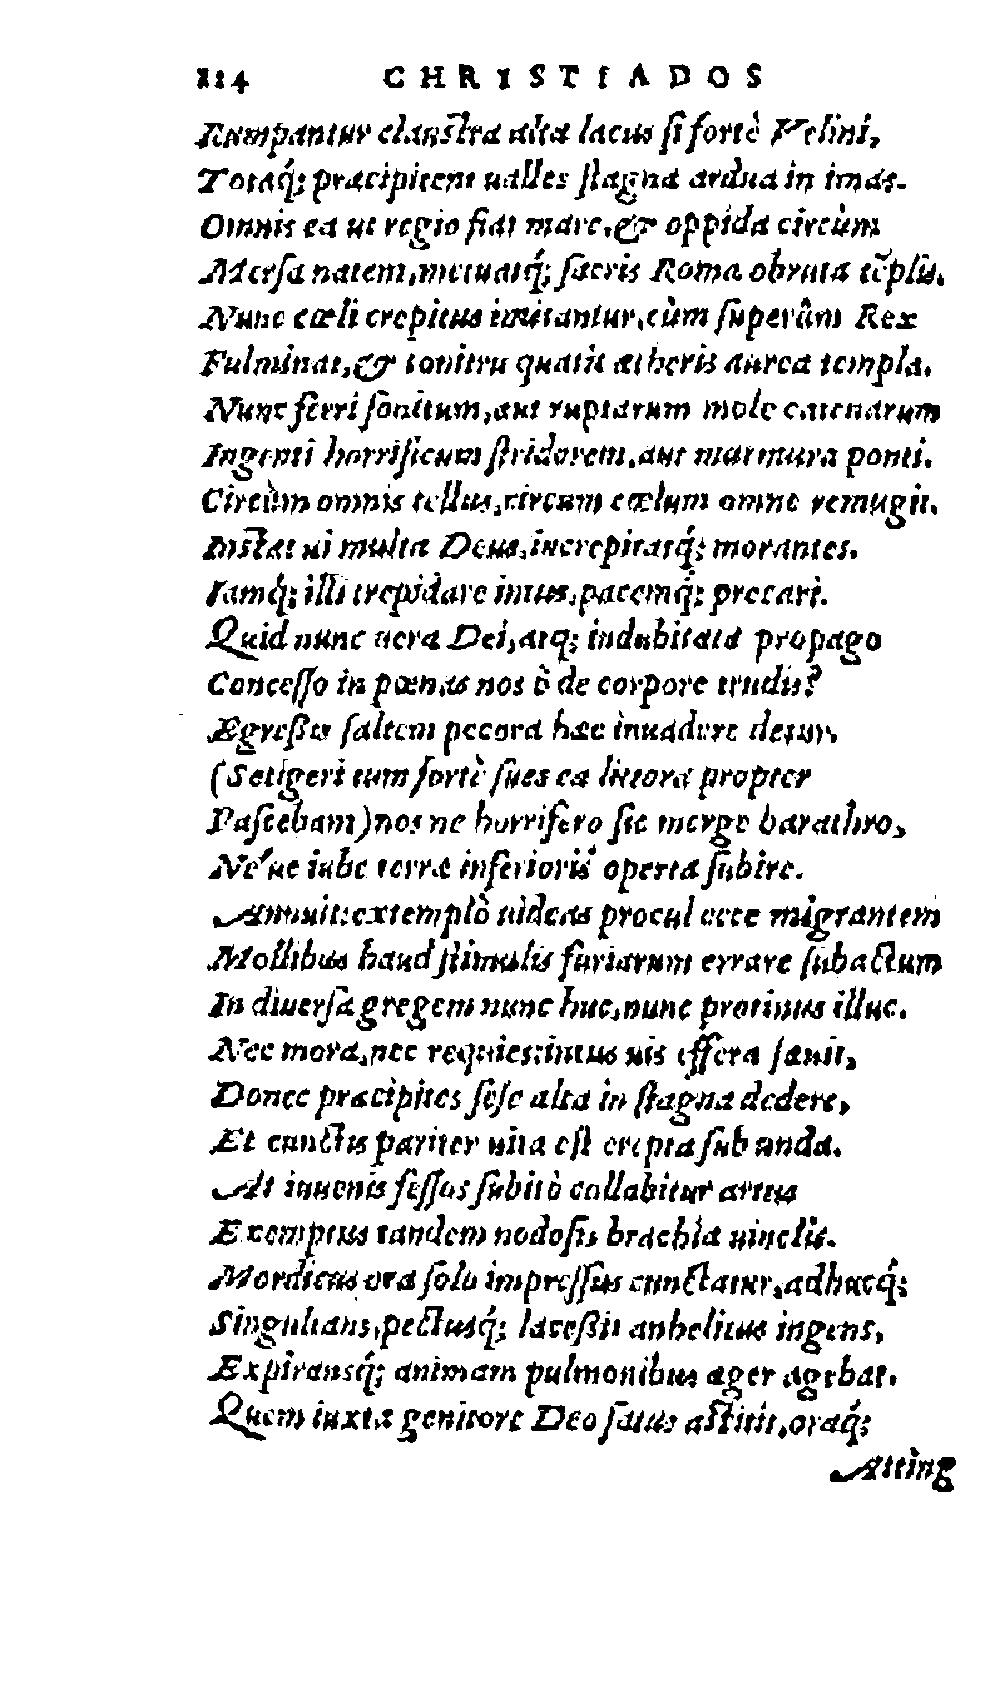 114 CHRISTIADOS
Rumpantur clauſtra alta lacus ſi fortè Velini,
Totaq́; præcipitent ualles ſtagna ardua in imas.
Omnis ea ut regio fiat mare, & oppida circùm
Merſa natent, metuatq́; ſacris Roma obruta tẽplis.
Nunc cœli crepitus imitantur, cùm ſuperûm Rex
Fulminat, & tonitru quatit ætheris aurea templa.
Nunc ferri ſonitum, aut ruptarum mole catenarum
Ingenti horrificum ſtridorem, aut murmura ponti.
Circùm omnis tellus, circum cœlum omne remugit.
Inſtat ui multa Deus, increpitatq́; morantes.
Iamq́; illi trepidare intus, pacemq́; precari.
Quid nunc uera Dei, atq; indubitata propago
Conceſſo in pœnas nos ò de corpore trudis?
Ægreßis ſaltem pecora hæc inuadere detur,
(Setigeri tum fortè ſues ea littora propter
Paſcebant) nos ne horrifero ſic merge barathro,
Né'ue iube terræ inferioris operta ſubire.
Annuit: extemplò uideas procul ecce migrantem
Mollibus haud ſtimulis furiarum errare ſubactum
In diuerſa gregem nunc huc, nunc protinus illuc.
Nec mora, nec requies: intus uis effera ſæuit,
Donec præcipites ſeſe alta in ſtagna dedere,
Et cunctis pariter uita eſt erepta ſub unda.
At iuuenis feſſos ſubitò collabitur artus
Exemptus tandem nodoſis brachia uinclis.
Mordicus ora ſolo impreſſus cunctatur, adhucq́;
Singultans, pectusq́; laceßit anhelitus ingens,
Expiransq́; animam pulmonibus æger agebat.
Quem iuxta genitore Deo ſatus aſtitit, oraq́;
Atting